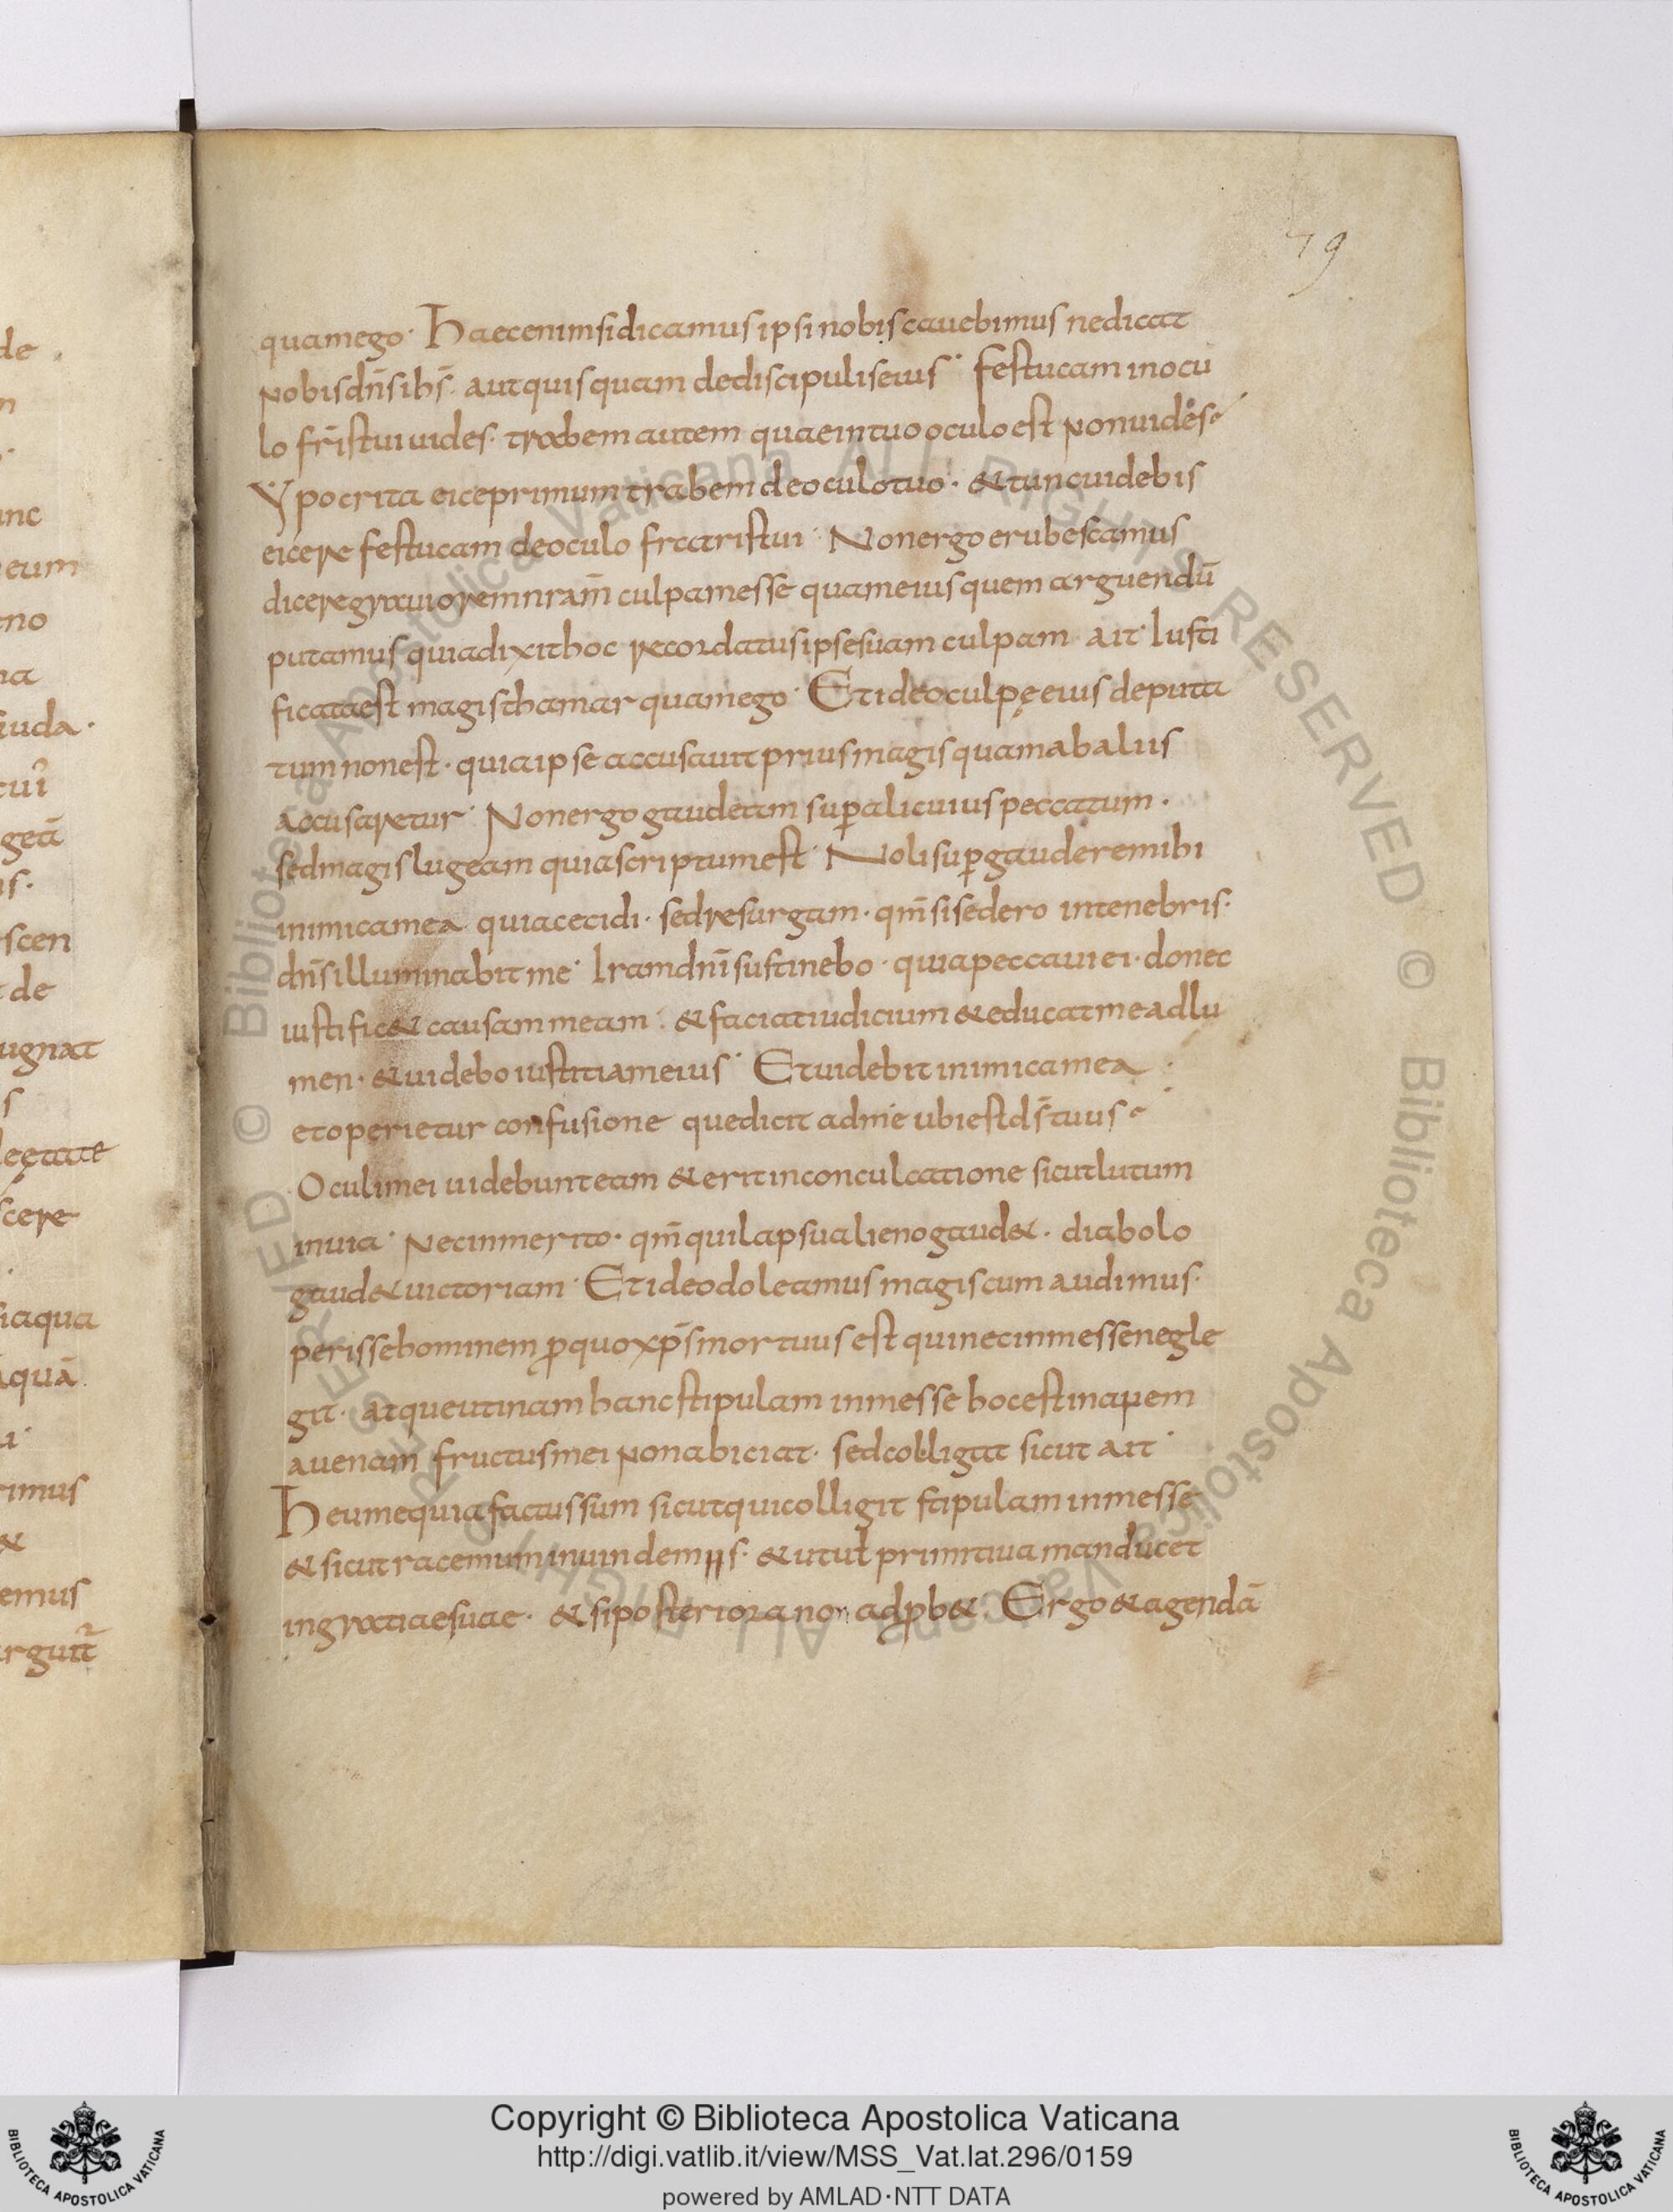 79
quamego· Haecenimsidicamusipsinobiscauebimus nedicat
nobisdn̄sih̄s· autquisquam dediscipuliseius· festucam inocu
lo fr̄istuiuides· trabemautem quaeintuooculoest nonuides·
Ypocrita eiceprimumtrabem deoculotuo· &tuncuidebis
eicere festucam deoculo fratristui· Nonergoerubescamus
dicere grauioremnram̄ culpamesse quameiusquem arguendū
putamus quiadixithoc recordatusipsesuam culpam ait· Iusti
ficataest magisthamar quamego· Etideoculpęeius deputa
tumnonest· quiaipse accusauitpriusmagisquamabaliis
accusaretur· Nonergogaudeam sup̄alicuiuspeccatum·
sedmagislugeam quiascriptumest· Nolisup̄gauderemihi
inimicamea quiacecidi· sedresurgam· qm̄sisedero intenebris·
dn̄silluminabitme· Iramdn̄isustinebo· quiapeccauiei· donec
iustific& causammeam· &faciatiudicium &educatmeadlu
men· &uideboiustitiameius· Etuidebitinimicamea·
etoperietur confusione quedicit adme ubiestds̄tuus·
Oculimei uidebunteam &eritinconculcatione sicutlutum
inuia· Necinmerito· qm̄quilapsualienogaud&· diabolo
gaud&uictoriam· Etideodoleamusmagiscum audimus·
perissehominem ꝓquoxp̄smortuusest quinecinmessenegle
git· atqueutinamhancstipulam inmesse hocestinanem
auenam fructusmei nonabiciat· sedcolligat sicut ait·
Heumequiafactussum sicutquicolligit stipulaminmesse
&sicutracemuminuindemiis· &utut primitiuamanducet
ingratiaesuae· &siposteriora non adꝓb&· Ergo&agendā
de
unc
eum
na
iuda·
tuī
geā
is·
scen
de
ugnat
s
scere
iaqua
aquā
rimus
&
emus
Copyright © Biblioteca Apostolica Vaticana
http://digi.vatlib.it/view/MSS_Vat.lat.296/0159
powered by AMLAD·NTT DATA
BIBLIOTECA APOSTOLICA VATICANA
BIBLIOTECA APOSTOLICA VATICANA
© Biblioteca Apostolica Vaticana ALL RIGHTS RESERVED © Biblioteca Apostolica Vaticana ALL RIGHTS RESERVED